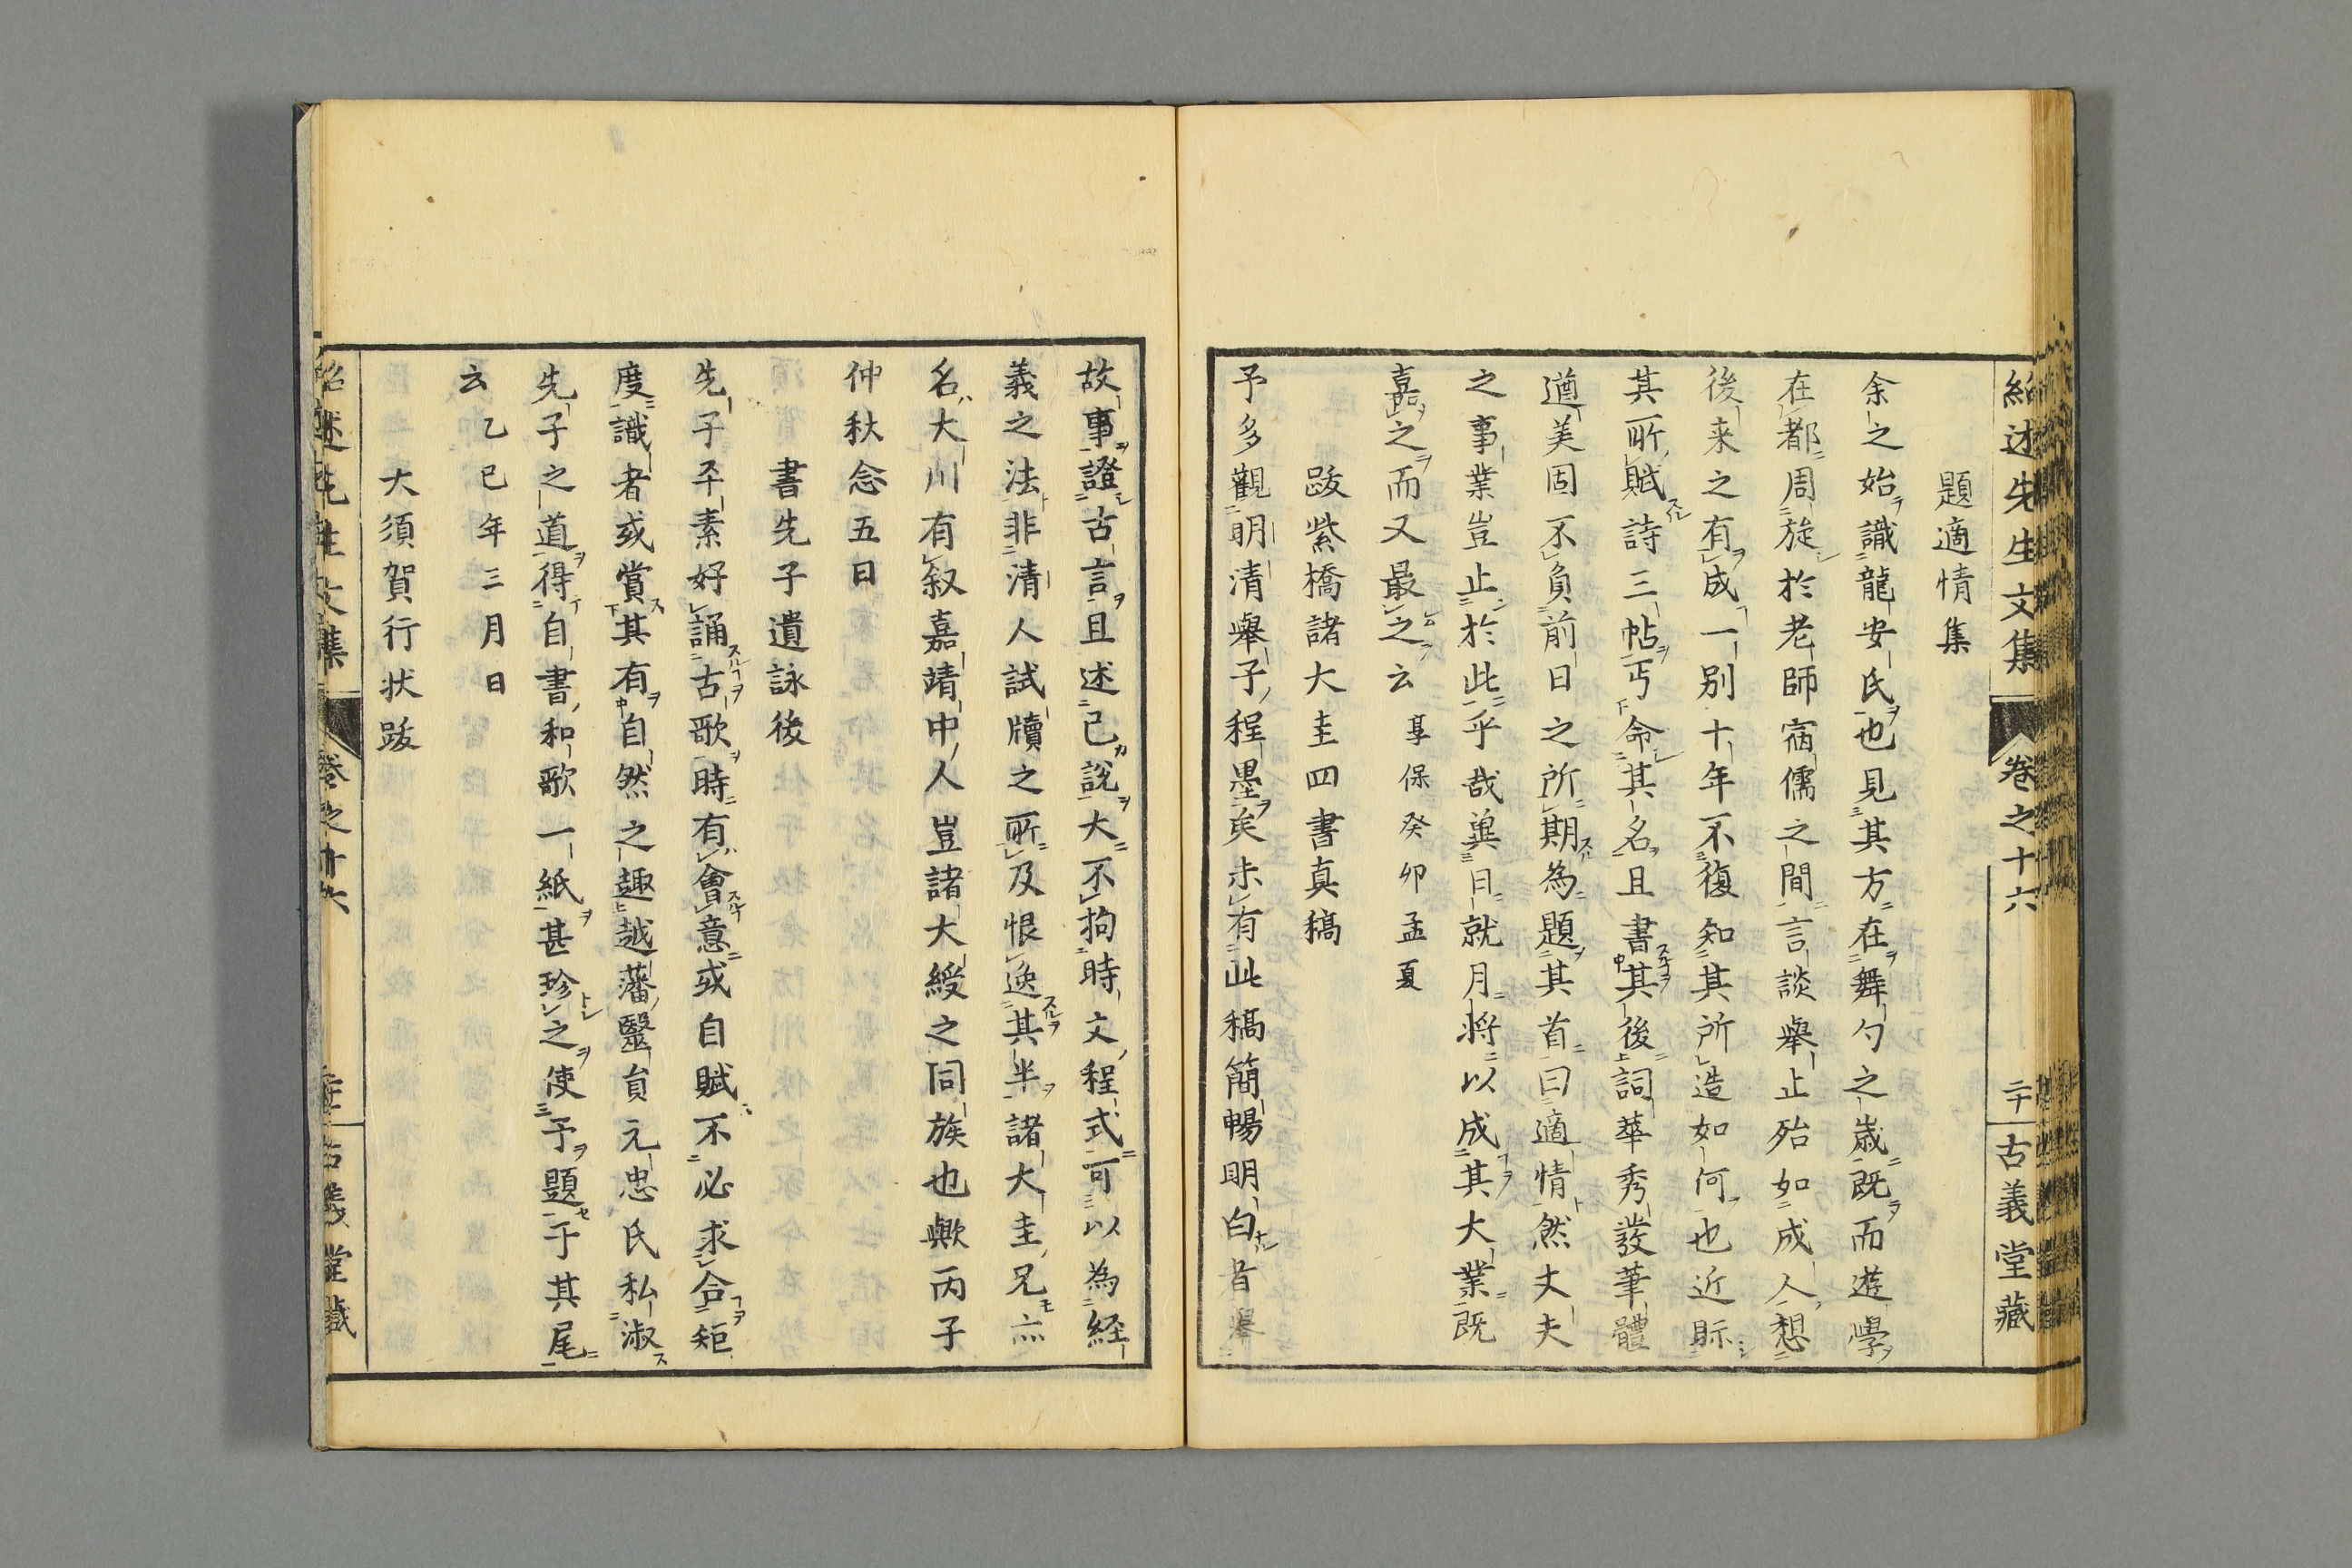 紹述先生文集 卷之十六 二十 古義堂藏
題適情集
余之始識龍安氏也見其方在舞勺之歲既而遊學
在都周旋於老師宿儒之間言談舉止殆如成人想
後来之有成一別十年不復知其所造如何也近眎
其所賦詩三帖丐命其名且書其後詞華秀發筆體
遒美固不負前日之所期為題其首曰適情然丈夫
之事業豈止於此乎哉巽日就月将以成其大業既
嘉之而又最之云 享保癸卯孟夏
跋紫橋諸大圭四書真稿
予多觀明清舉子程墨矣未有此稿簡暢明白者舉
故事證古言且述已說大不拘時文程式可以為経
義之法非清人試牘之所及恨逸其半諸大圭兄亦
名大川有叙嘉靖中人豈諸大綬之同族也歟丙子
仲秋念五日
書先子遺詠後
先子平素好誦古歌時有會意或自賦不必求合矩
度識者或賞其有自然之趣越藩醫員元忠氏私淑
先子之道得自書和歌一紙甚珍之使予題于其尾
云 乙巳年三月日
大須賀行状跋
紹述先生文集 卷之十六 古義堂藏